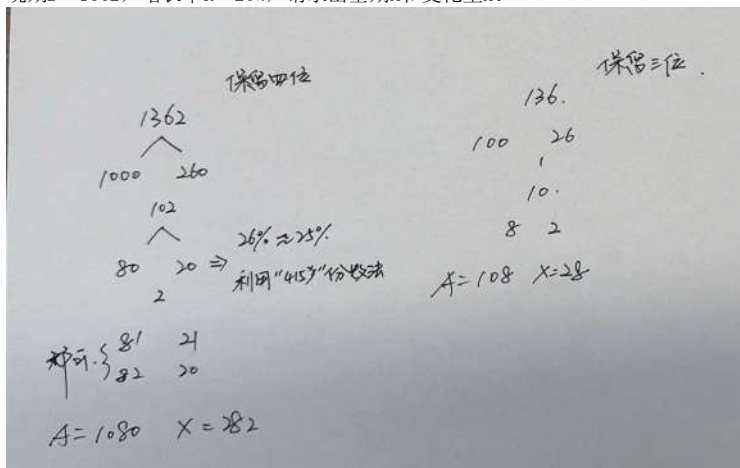 保留四位
1362
1000 260
102
80 20 ⇒
2
26% ≈ 25%
利用"415分"份数法
都可. { 81 21
82 20
A=1080 X=282
保留三位.
136.
100 26
10.
8 2
A=108 X=28